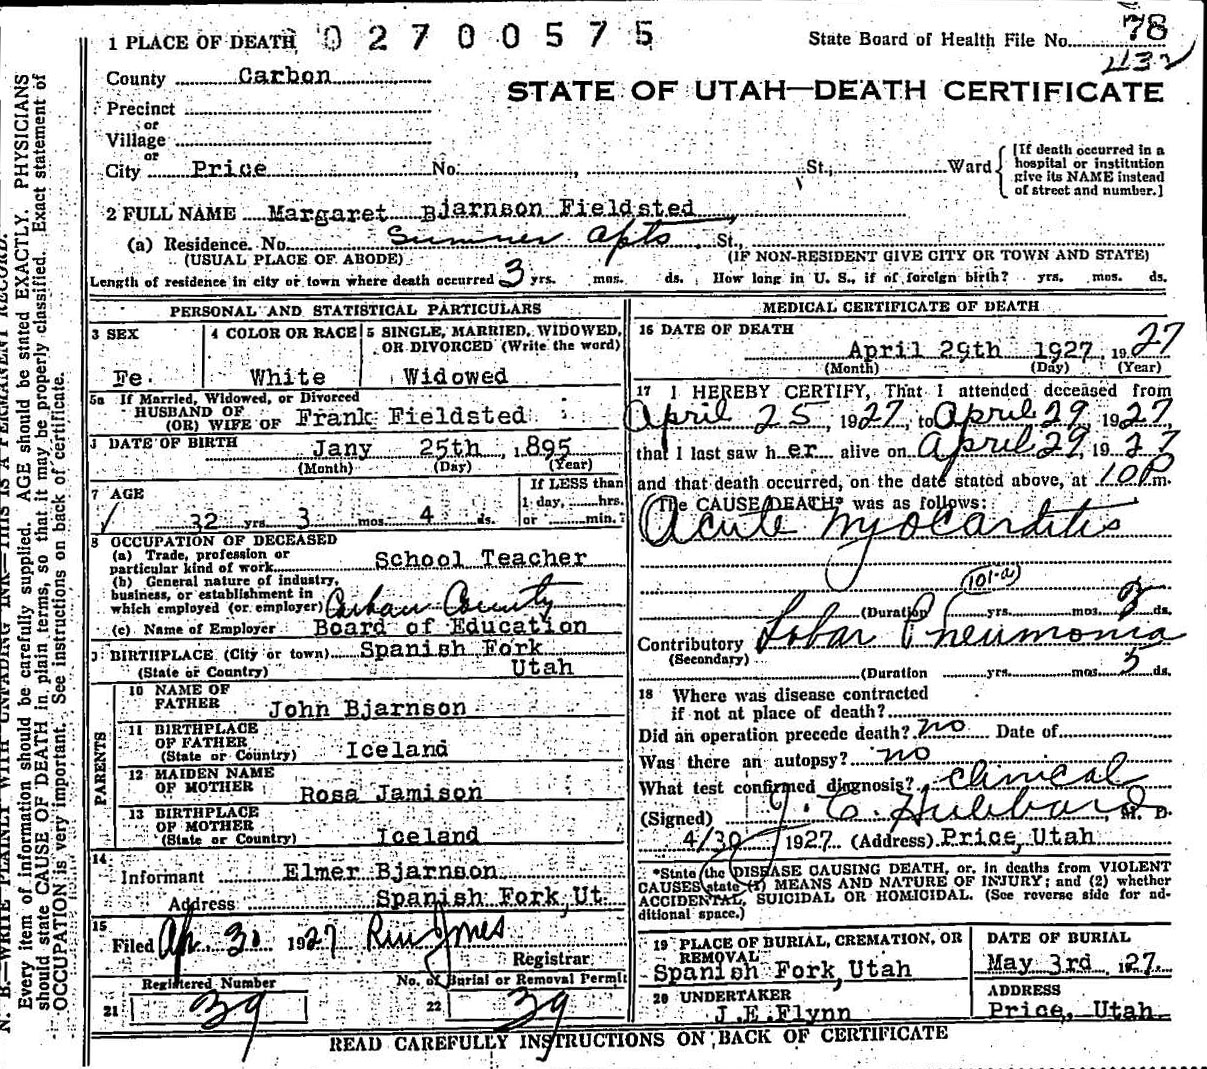 1 PLACE OF DEATH 02700575
State Board of Health File No. 78
432
County Carbon
STATE OF UTAH—DEATH CERTIFICATE
Precinct
or
Village
or
City Price No. , St., Ward
[If death occurred in a hospital or institution give its NAME instead of street and number.]
2 FULL NAME Margaret Bjarnson Fieldsted
(a) Residence. No. Sumner Apts St.,
(USUAL PLACE OF ABODE) (IF NON-RESIDENT GIVE CITY OR TOWN AND STATE)
Length of residence in city or town where death occurred 3 yrs. mos. ds. How long in U. S., if of foreign birth? yrs. mos. ds.
PERSONAL AND STATISTICAL PARTICULARS
3 SEX
Fe
4 COLOR OR RACE
White
5 SINGLE, MARRIED, WIDOWED,
OR DIVORCED (Write the word)
Widowed
5a If Married, Widowed, or Divorced
HUSBAND OF
(OR) WIFE OF Frank Fieldsted
DATE OF BIRTH Jany 25th , 1895
(Month) (Day) (Year)
7 AGE
32 yrs. 3 mos. 4 ds.
If LESS than
1 day, hrs.
or min.
8 OCCUPATION OF DECEASED
(a) Trade, profession or
particular kind of work School Teacher
(b) General nature of industry,
business, or establishment in
which employed (or employer) Carbon County
(c) Name of Employer Board of Education
BIRTHPLACE (City or town) Spanish Fork
(State or Country) Utah
PARENTS
10 NAME OF
FATHER John Bjarnson
11 BIRTHPLACE
OF FATHER
(State or Country) Iceland
12 MAIDEN NAME
OF MOTHER Rosa Jamison
13 BIRTHPLACE
OF MOTHER
(State or Country) Iceland
14 Informant Elmer Bjarnson
Address Spanish Fork, Ut.
15
Filed Ap. 30 1927
Registrar
Registered Number
21 39
No. of Burial or Removal Permit
22 39
MEDICAL CERTIFICATE OF DEATH
16 DATE OF DEATH
April 29th 1927, 1927
(Month) (Day) (Year)
17 I HEREBY CERTIFY, That I attended deceased from
April 25, 1927, to April 29, 1927,
that I last saw her alive on April 29, 1927
and that death occurred, on the date stated above, at 10 P m.
The CAUSE DEATH* was as follows:
Acute Myocarditis
101-a
(Duration yrs. mos. 3 ds.
Contributory Lobar Pneumonia
(Secondary)
(Duration yrs. mos. 5 ds.
18 Where was disease contracted
if not at place of death?
Did an operation precede death? no Date of
Was there an autopsy? no
What test confirmed diagnosis? clinical
(Signed) J. C. Hubbard, M. D.
4/30 1927 (Address) Price, Utah
*State the DISEASE CAUSING DEATH, or, in deaths from VIOLENT
CAUSES state (1) MEANS AND NATURE OF INJURY; and (2) whether
ACCIDENTAL, SUICIDAL OR HOMICIDAL. (See reverse side for ad-
ditional space.)
19 PLACE OF BURIAL, CREMATION, OR
REMOVAL
Spanish Fork, Utah
DATE OF BURIAL
May 3rd, 1927.
20 UNDERTAKER
J.E.Flynn
ADDRESS
Price, Utah
READ CAREFULLY INSTRUCTIONS ON BACK OF CERTIFICATE
N. B.—WRITE PLAINLY WITH UNFADING INK—THIS IS A PERMANENT RECORD.
Every item of information should be carefully supplied. AGE should be stated EXACTLY. PHYSICIANS
should state CAUSE OF DEATH in plain terms, so that it may be properly classified. Exact statement of
OCCUPATION is very important. See instructions on back of certificate.